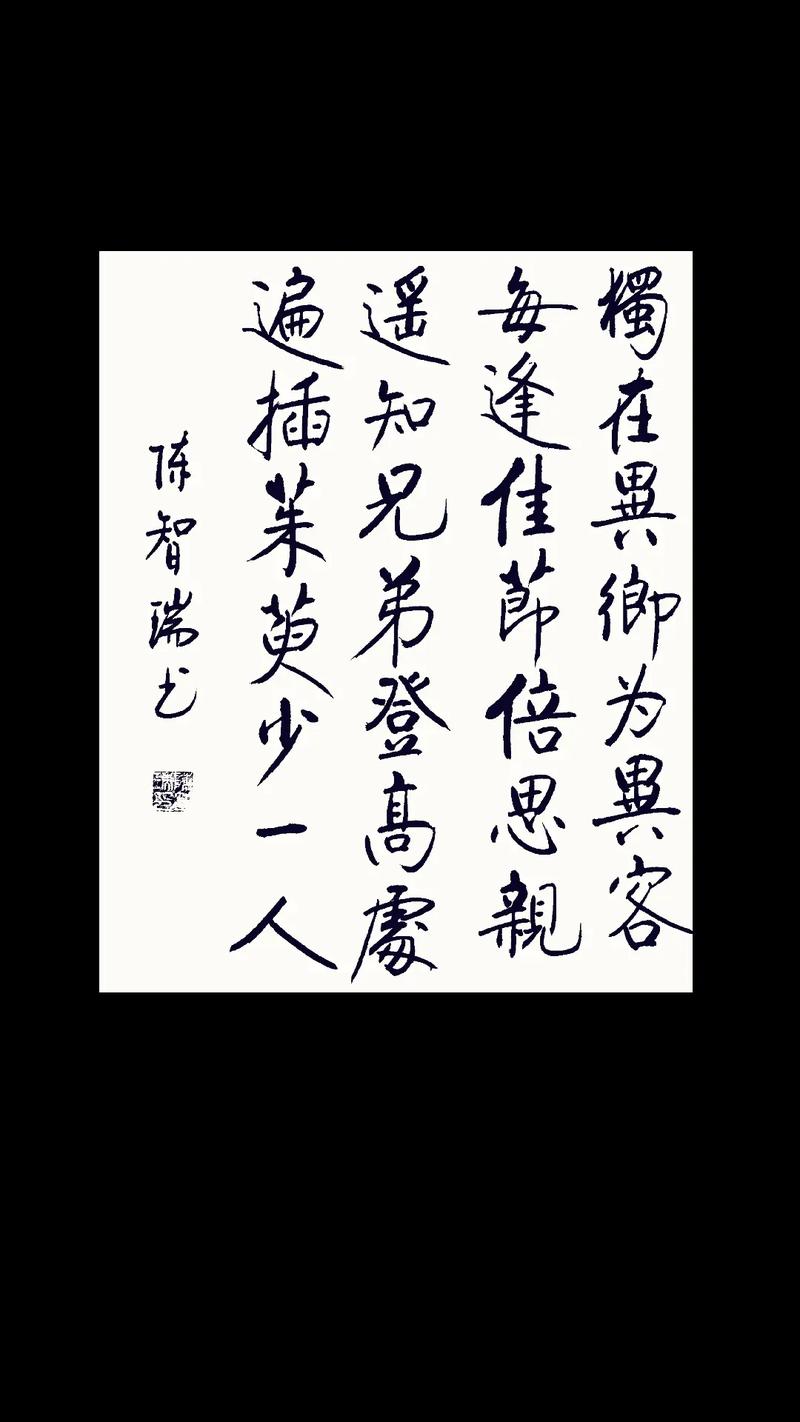 獨在異鄉为異客
每逢佳節倍思親
遥知兄弟登高處
遍插茱萸少一人
陈智瑞书